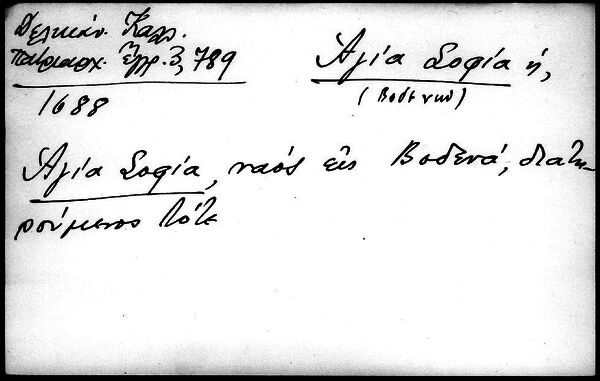 Δελικάν. Καλλ.
Πατριαρχ. Ἔγγρ. 3, 789
1688
Ἁγία Σοφία ἡ,
(Βοδενῶν)
Ἁγία Σοφία, ναός εἰς Βοδενά, διατη-
ρούμενος τότε